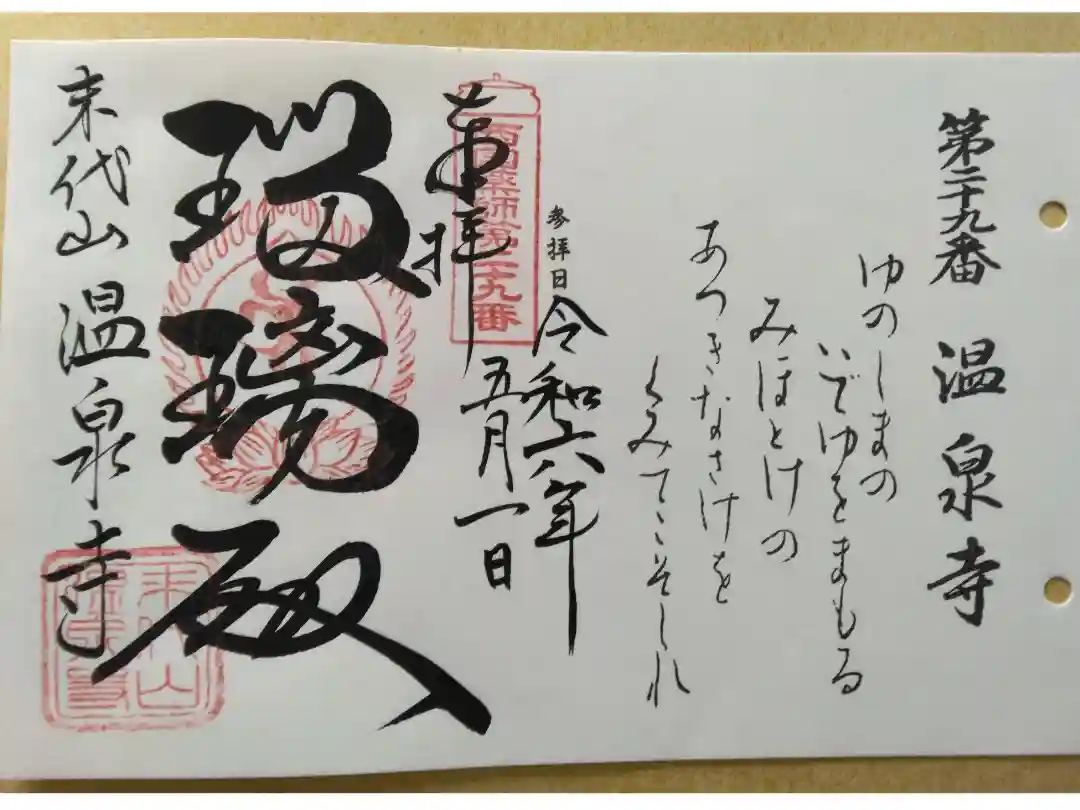 第二十九番 温泉寺
ゆのしまの
いでゆをまもる
みほとけの
あつきなさけを
くみてこそしれ
参拝日 令和六年
五月一日
奉拝
西国薬師第二十九番
瑠璃殿
末代山 温泉寺
末代山